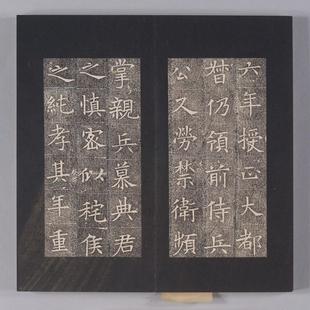 六年授正大都
督仍領前侍兵
公又勞禁衛頻
掌親兵慕典君
之慎密似秺侯
之純孝其年重